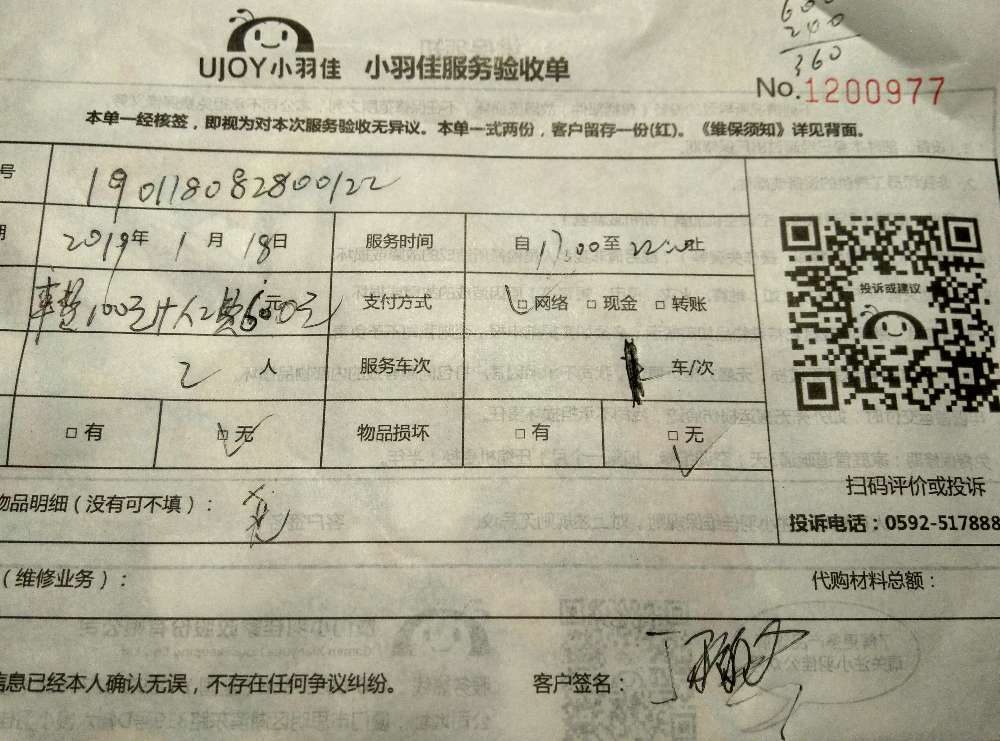 600
200
360
UJOY小羽佳 小羽佳服务验收单
No.1200977
本单一经核签，即视为对本次服务验收无异议。本单一式两份，客户留存一份(红)。《维保须知》详见背面。
号 190118082800122
期 2019年 1月 18日 服务时间 自 17:00至 22:00止
车费100元+人工费600元 元 支付方式 □网络 □现金 □转账
投诉或建议
2 人 服务车次 车/次
□有 □无 物品损坏 □有 □无
扫码评价或投诉
物品明细（没有可不填）： 无
投诉电话：0592-517888
（维修业务）： 代购材料总额：
信息已经本人确认无误，不存在任何争议纠纷。 客户签名：